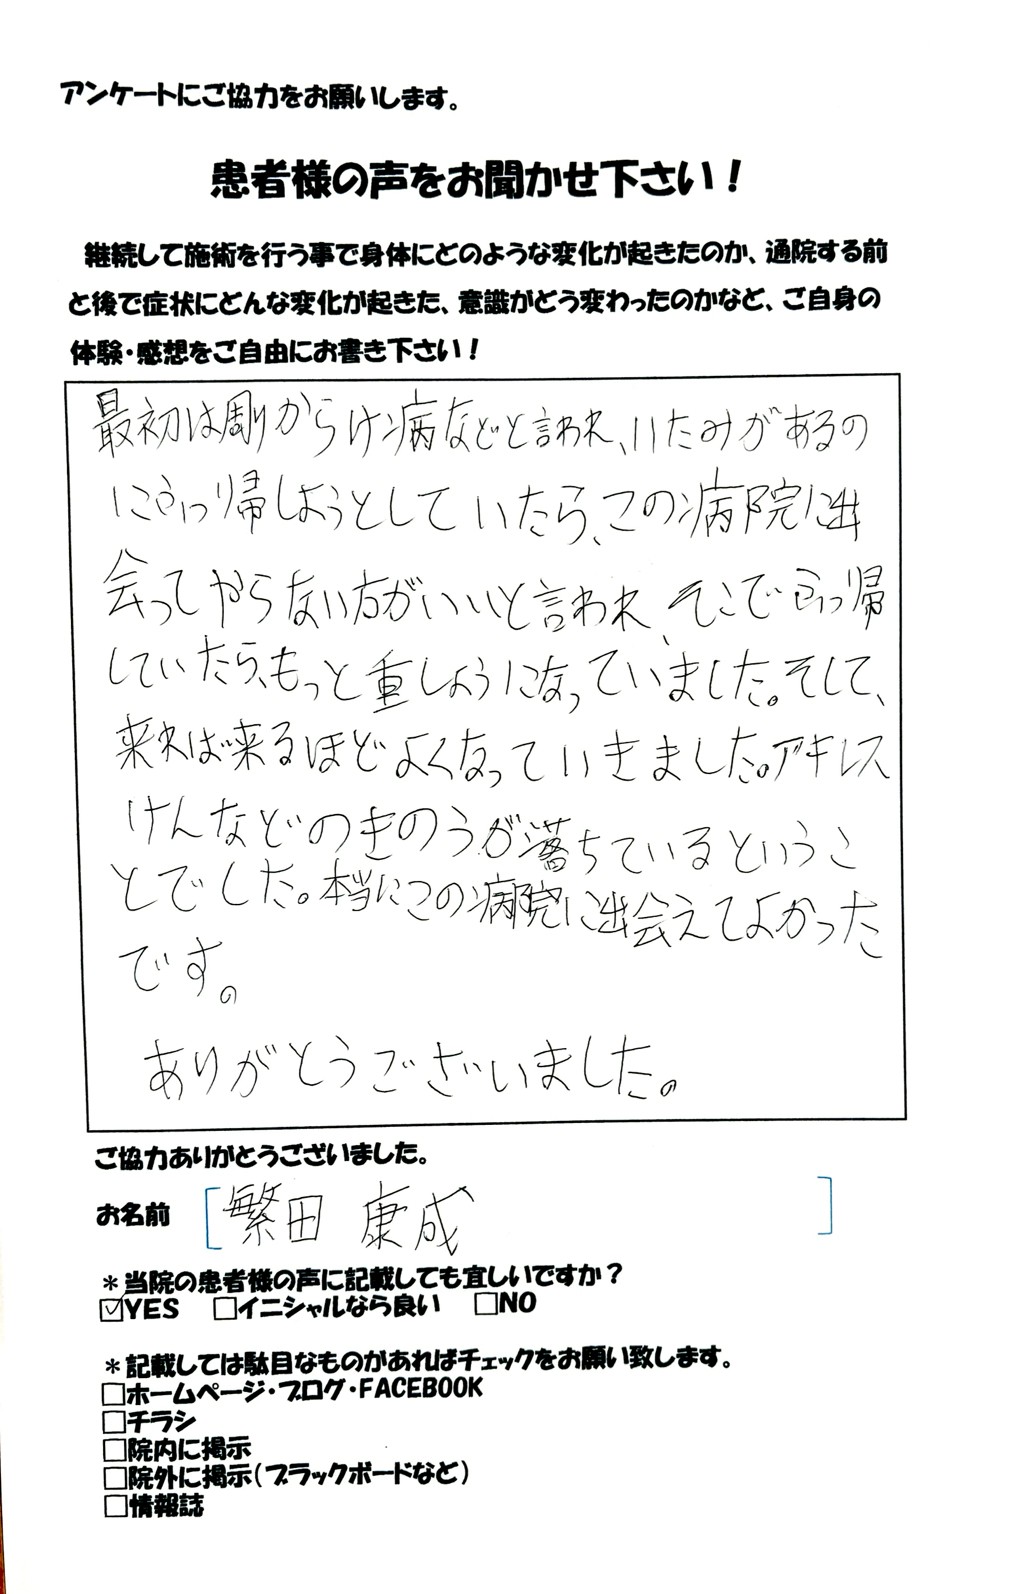 アンケートにご協力をお願いします。
患者様の声をお聞かせ下さい！
継続して施術を行う事で身体にどのような変化が起きたのか、通院する前
と後で症状にどんな変化が起きた、意識がどう変わったのかなど、ご自身の
体験・感想をご自由にお書き下さい！
最初は周りからけ病などと言われ、いたみがあるの
にふっ帰しようとしていたら、この病院に出
会ってやらない方がいいと言われ、そこでふっ帰
していたら、もっと重しょうになっていました。そして、
来れば来るほどよくなっていきました。アキレス
けんなどのきのうが落ちているというこ
とでした。本当にこの病院に出会えてよかった
です。
ありがとうございました。
ご協力ありがとうございました。
お名前 [繁田 康成]
＊当院の患者様の声に記載しても宜しいですか？
☑YES □イニシャルなら良い □NO
＊記載しては駄目なものがあればチェックをお願い致します。
□ホームページ・ブログ・FACEBOOK
□チラシ
□院内に掲示
□院外に掲示（ブラックボードなど）
□情報誌